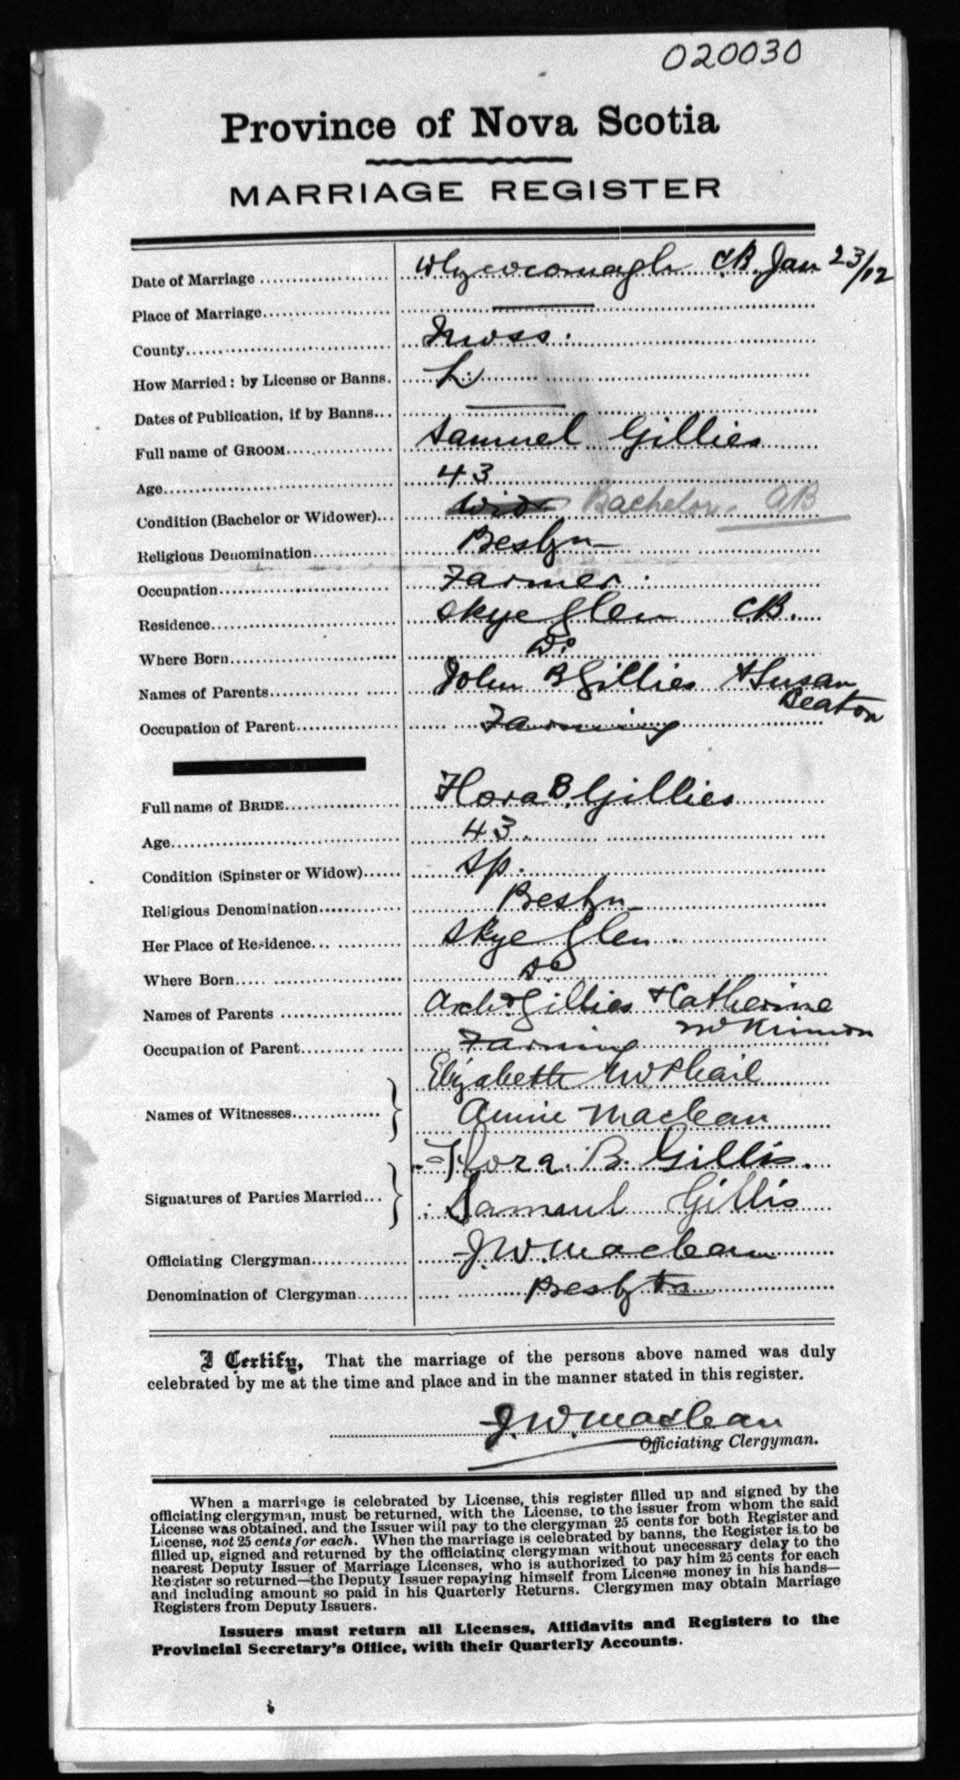 020030
Province of Nova Scotia
MARRIAGE REGISTER
Date of Marriage Whycocomagh C.B. Jan 23/12
Place of Marriage
County Invss.
How Married: by License or Banns. L.
Dates of Publication, if by Banns
Full name of GROOM Samuel Gillies
Age 43
Condition (Bachelor or Widower) Wid Bachelor AB
Religious Denomination Presbyn
Occupation Farmer
Residence Skye Glen C.B.
Where Born Do
Names of Parents John B Gillies & Susan
Beaton
Occupation of Parent Farming
Full name of BRIDE Flora B. Gillies
Age 43.
Condition (Spinster or Widow) Sp.
Religious Denomination Presbyn
Her Place of Residence Skye Glen.
Where Born Do
Names of Parents Archd Gillies & Catherine
McKinnon
Occupation of Parent Farming
Elizabeth McPhail
Names of Witnesses
Annie Maclean
Flora. B. Gillis.
Signatures of Parties Married
Samaul Gillis
Officiating Clergyman J. W. Maclean
Denomination of Clergyman
I Certify, That the marriage of the persons above named was duly
celebrated by me at the time and place and in the manner stated in this register.
J. W. Maclean
Officiating Clergyman.
When a marriage is celebrated by License, this register filled up and signed by the
officiating clergyman, must be returned, with the License, to the issuer from whom the said
License was obtained, and the Issuer will pay to the clergyman 25 cents for both Register and
License, not 25 cents for each. When the marriage is celebrated by banns, the Register is to be
filled up, signed and returned by the officiating clergyman without unecessary delay to the
nearest Deputy Issuer of Marriage Licenses, who is authorized to pay him 25 cents for each
Register so returned—the Deputy Issuer repaying himself from License money in his hands—
and including amount so paid in his Quarterly Returns. Clergymen may obtain Marriage
Registers from Deputy Issuers.
Issuers must return all Licenses, Affidavits and Registers to the
Provincial Secretary's Office, with their Quarterly Accounts.